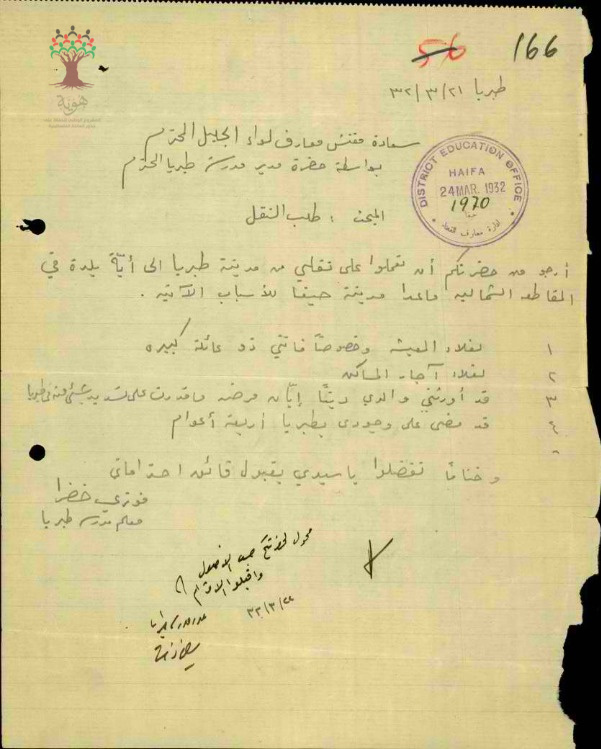 56 166
هوية
طبريا ٢١/٣/٣٢
سعادة مفتش معارف لواء الجليل المحترم
بواسطة حضرة مدير مدرسة طبريا المحترم
DISTRICT EDUCATION OFFICE
HAIFA
24 MAR. 1932
1970
حيفا
ادارة معارف
المبحث : طلب النقل
أرجو من حضرتكم أن تعملوا على نقلي من مدينة طبريا الى أيّة بلدة في
المقاطعه الشماليه ماعدا مدينة حيفا للأسباب الآتيه .
١ لغلاء المعيشه وخصوصاً فانني ذو عائلة كبيره
٢ لغلاء آجار المساكن
٣ قد أورثني والدي ديناً إبّان مرضه وماقدرت على تسديد شئ منه في طبريا
٤ قد مضى على وجودى بطبريا أربعة أعوام
و ختاماً تفضلوا ياسيدي بقبول فائق احتراماتي
فوزي خضرا
معلم مدرسة طبريا
محول لحضرتكم حسب الاصول
واقبلوا الاحترام
مدير مدرسة طبريا